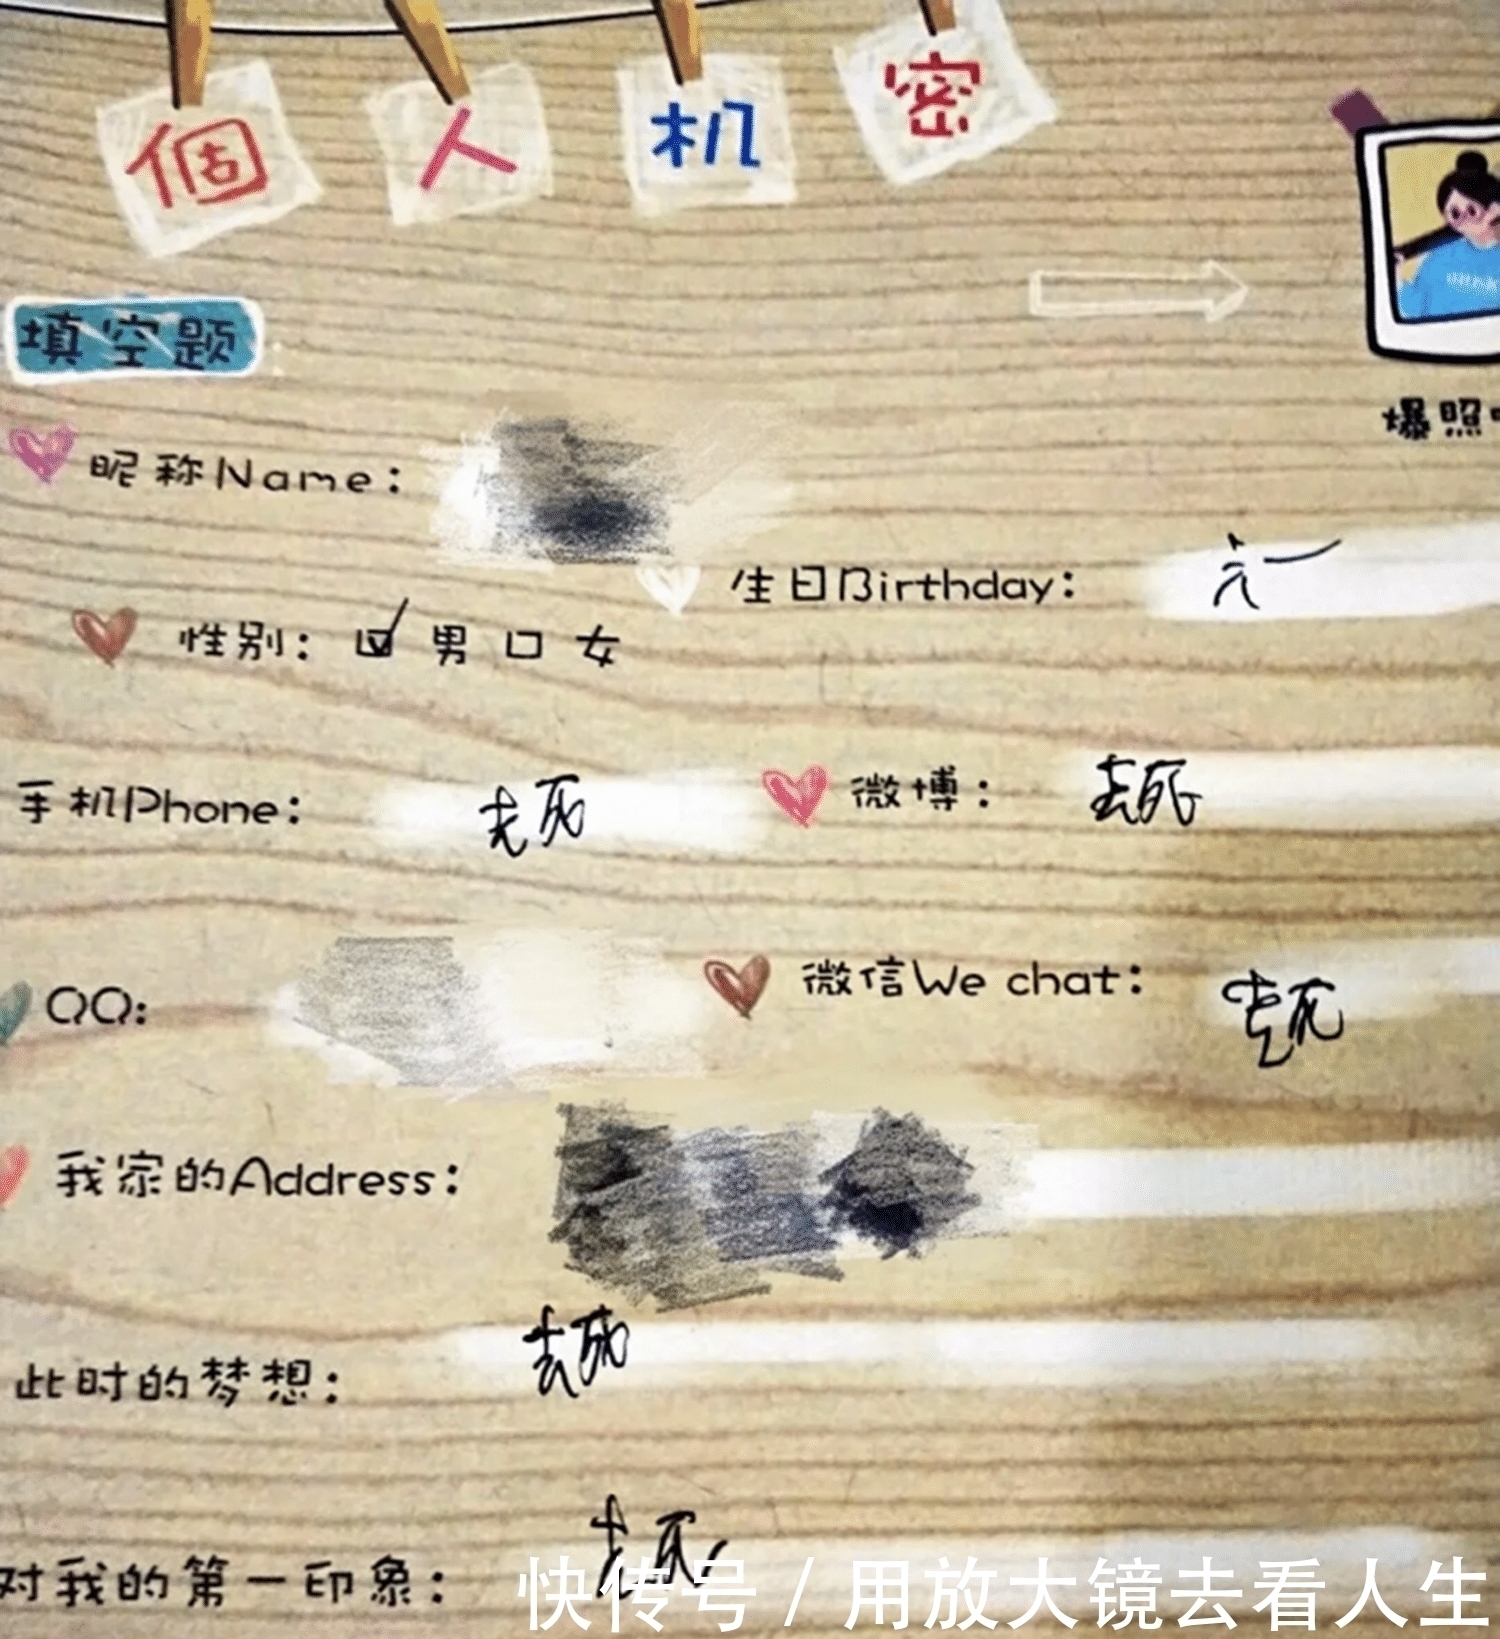 個人机密
填空题:
爆照
昵称Name:
生日Birthday: 六一
性别: ☑男 口女
手机Phone: 去死
微博: 去死
QQ:
微信We chat: 去死
我家的Address:
此时的梦想: 去死
对我的第一印象: 去死
快传号 / 用放大镜去看人生